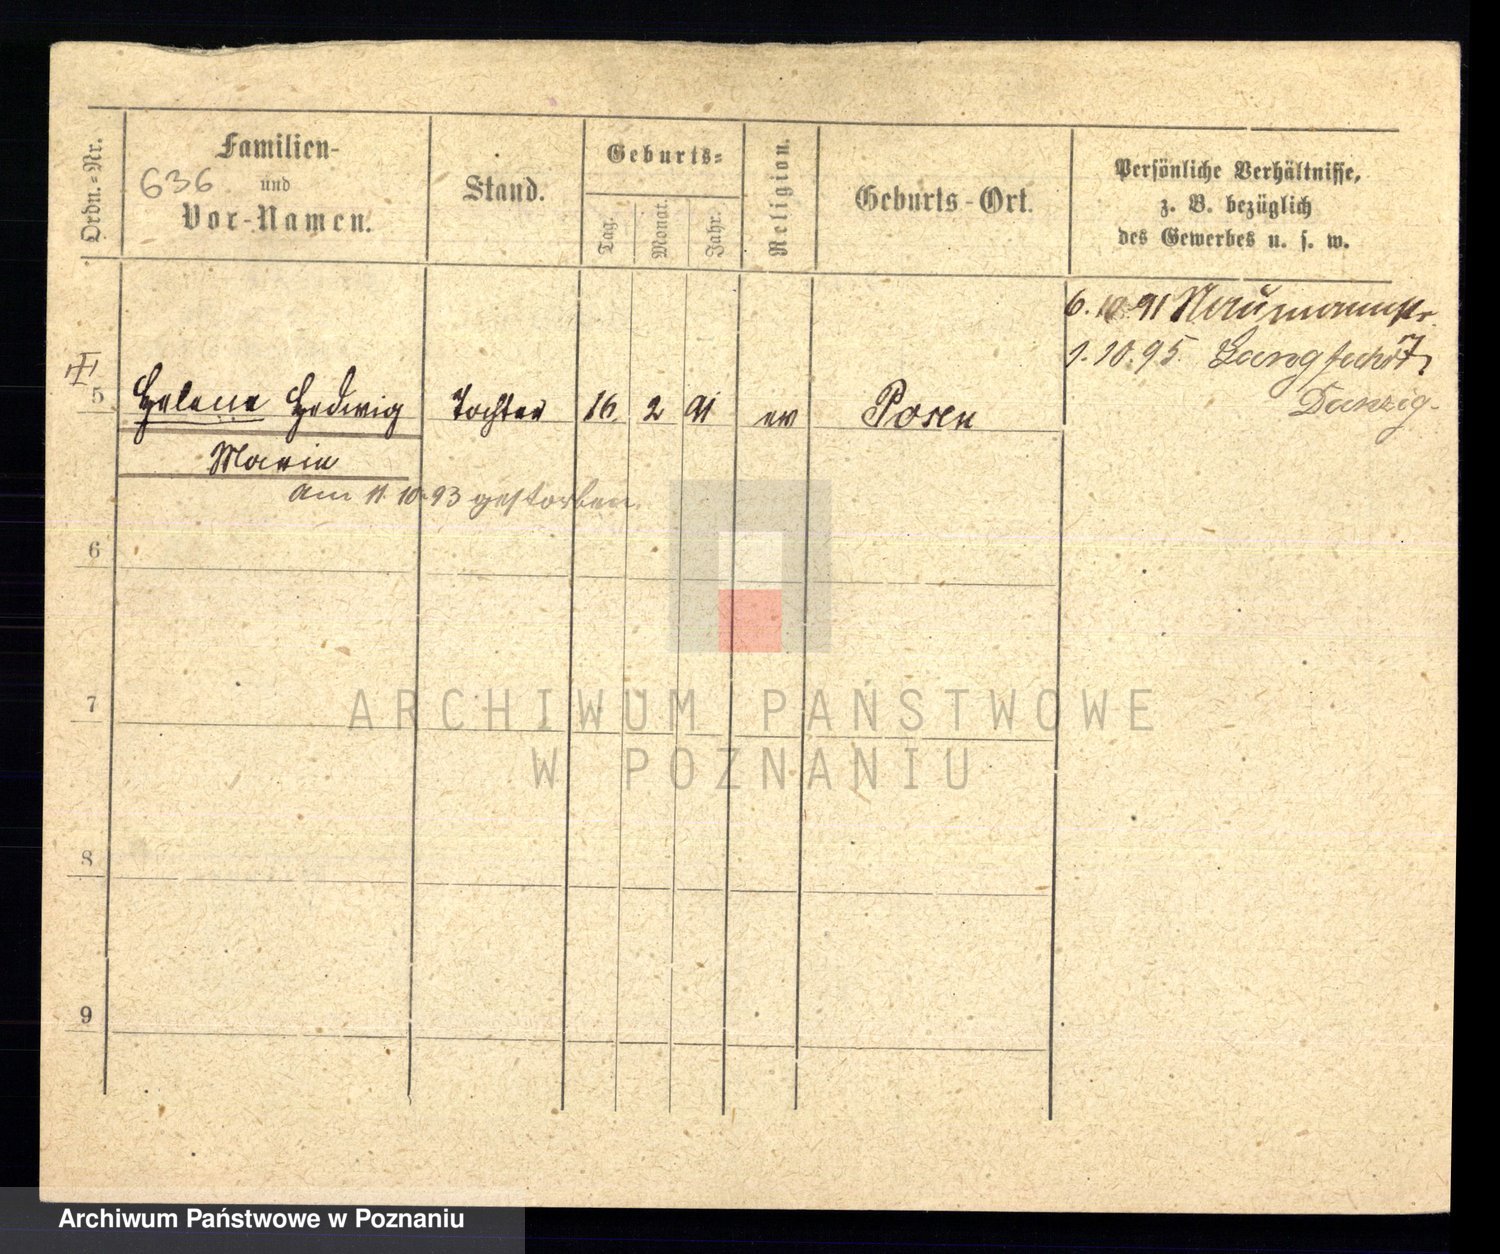 Ordn.=Nr.
Familien-
und
Vor-Namen.
636
Stand.
Geburts=
Tag.
Monat.
Jahr.
Religion.
Geburts-Ort.
Persönliche Verhältnisse,
z. B. bezüglich
des Gewerbes u. s. w.
6. 10. 91 Naumannstr.
1. 10. 95.
Danzig.
5 Helene Hedwig Tochter 16. 2 91 ev Posen
Marie
am 11. 10. 93 gestorben.
6
7
8
9
ARCHIWUM PAŃSTWOWE
W POZNANIU
Archiwum Państwowe w Poznaniu